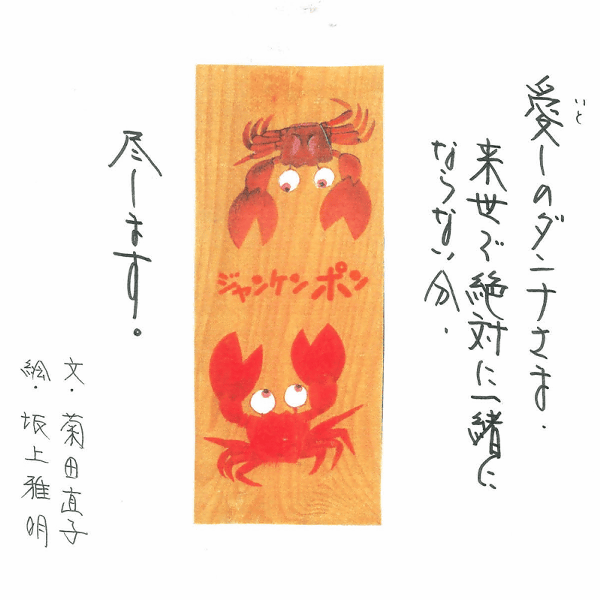 愛しのダンナさま.
いと
来世で絶対に一緒に
ならない分.
ジャンケンポン
尽します.
文.菊田直子
絵.坂上雅明